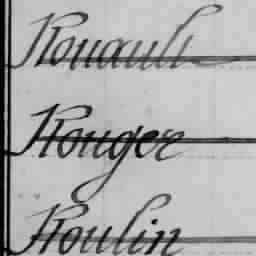 Rouault
Rouger
Roulin